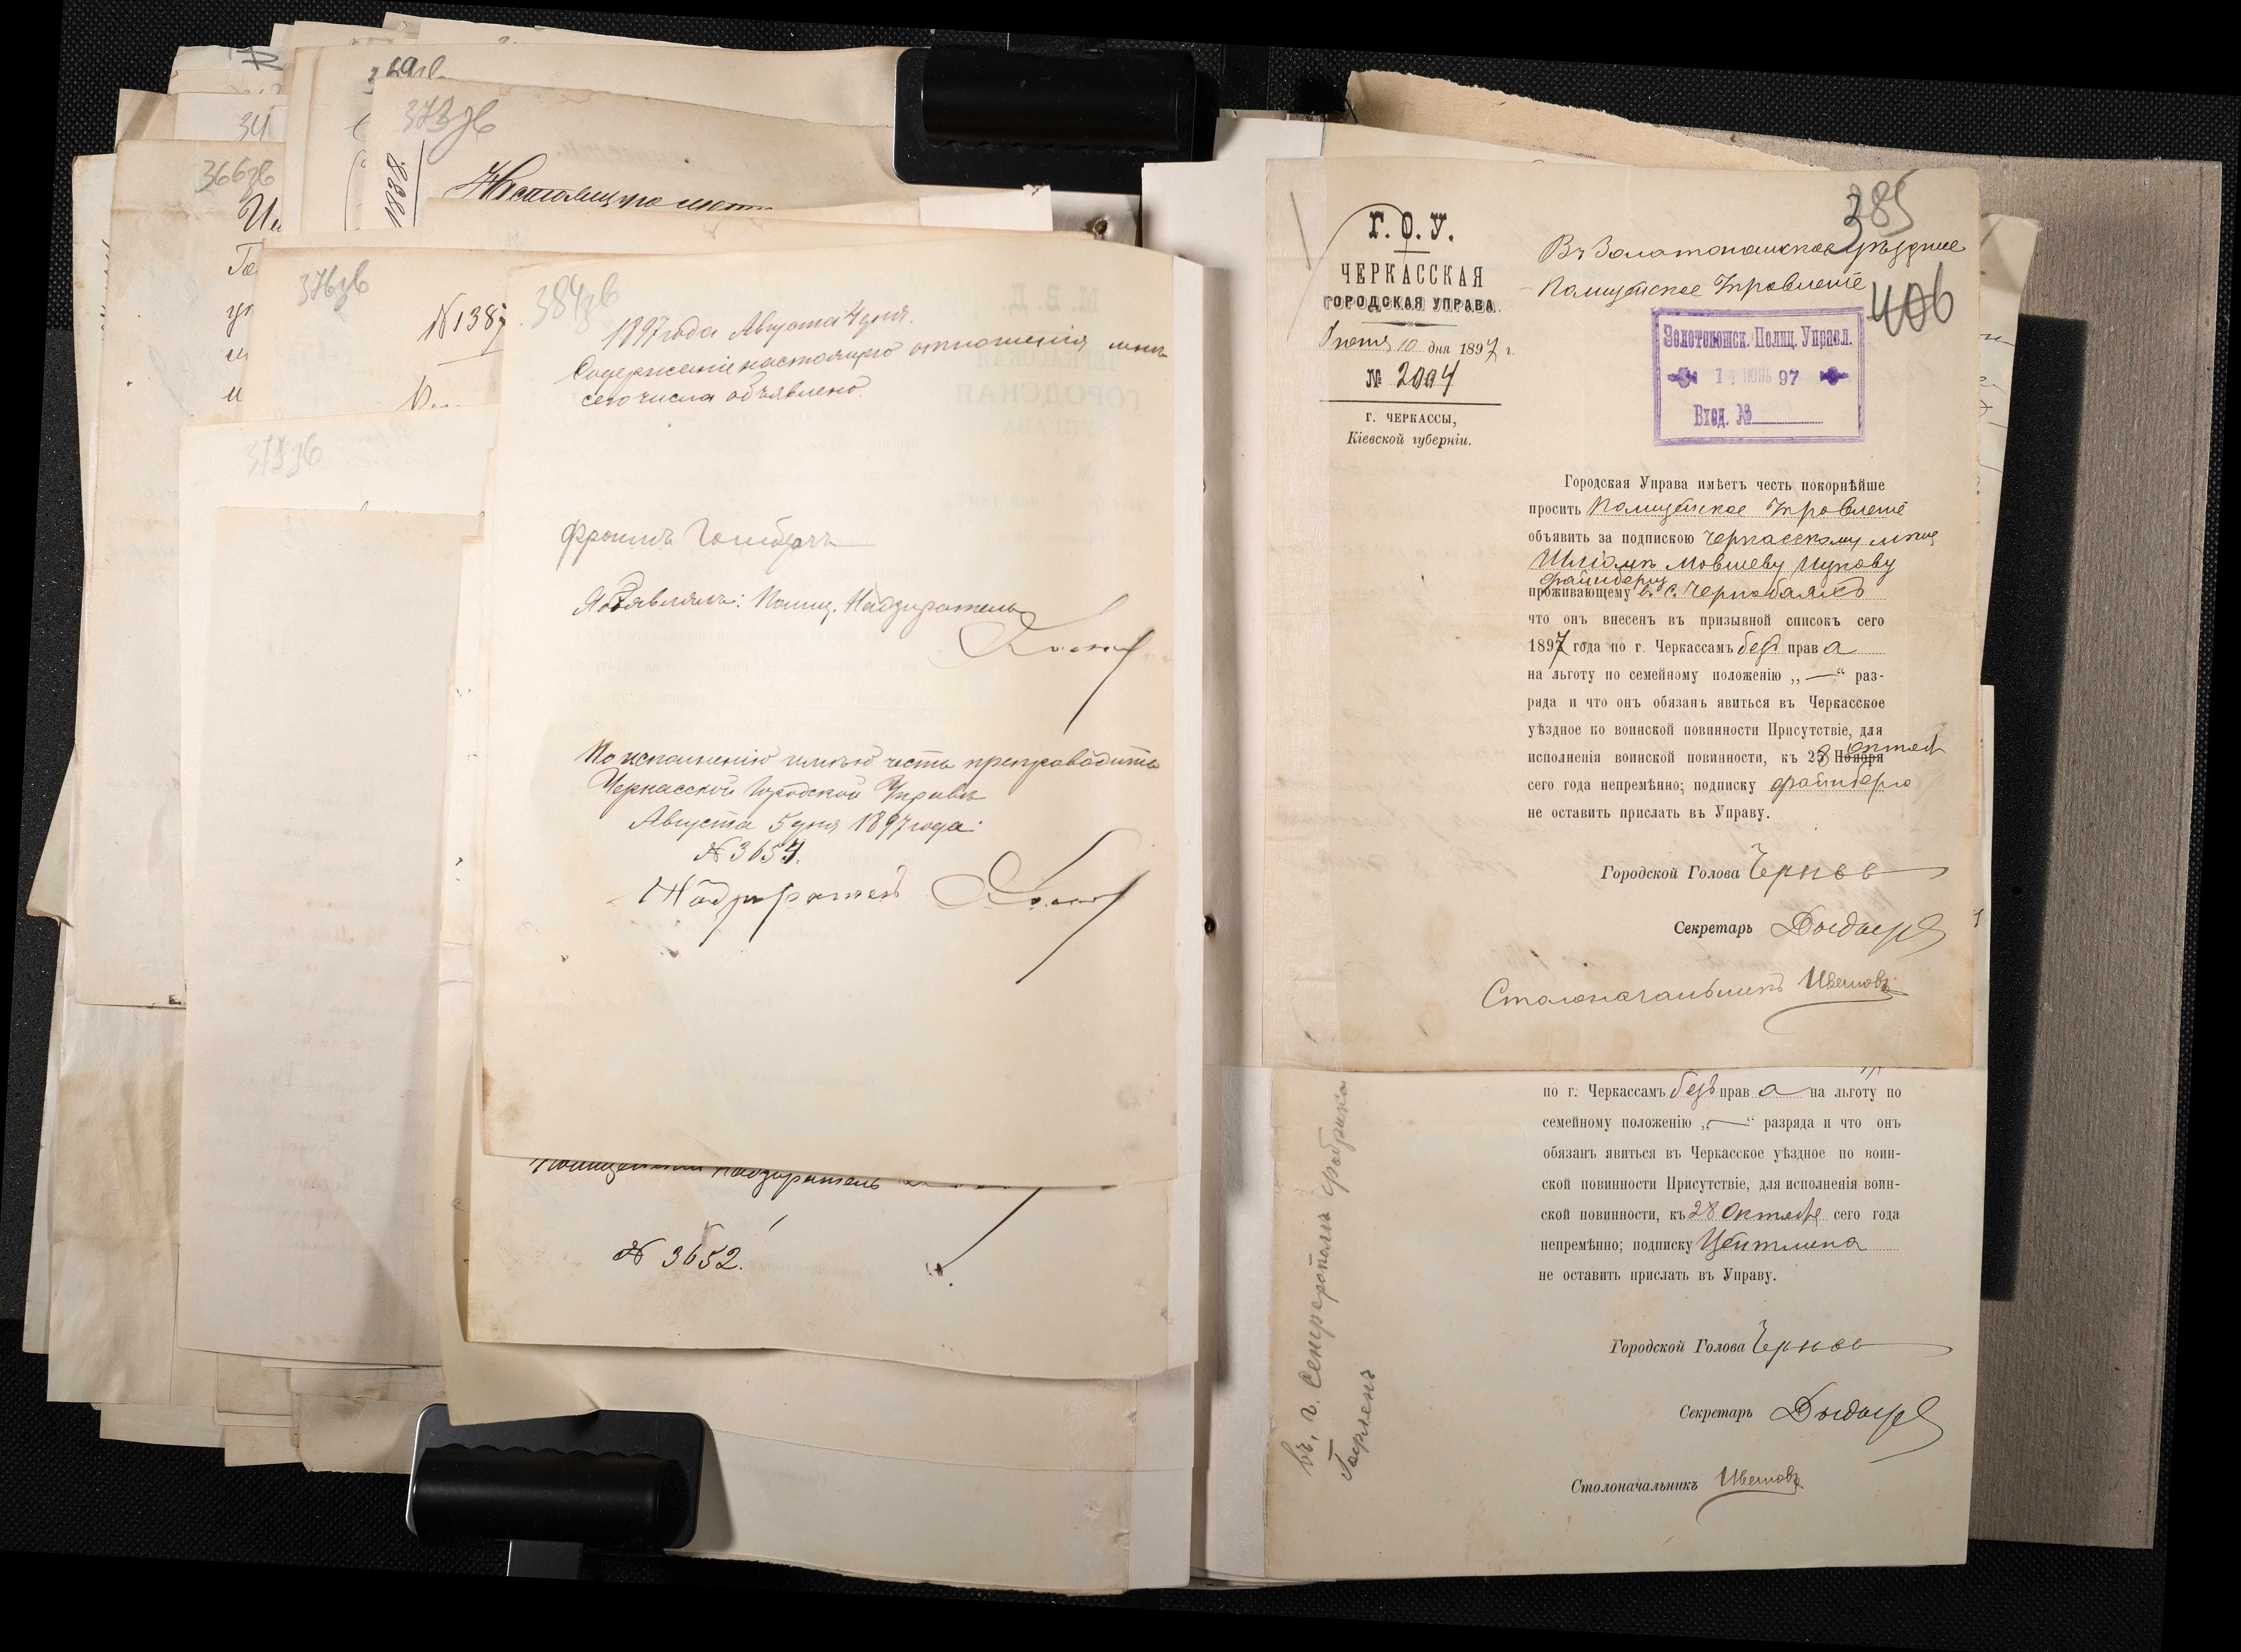 373зв
1838.
366зв
34
376зв
№ 1387
384зв
1897 года Августа 4 дня.
Содержаніе настоящаго отношенія мнѣ
сего числа объявлено.
Объявлялъ: Полиц. Надзиратель
По исполненію имѣю честь препроводить
Черкасской Городской Управѣ
Августа 5 дня 1897 года.
№ 3654.
Надзиратель
Полицейскій Надзиратель
№ 3652.
385
406
Г. О. У.
ЧЕРКАССКАЯ
ГОРОДСКАЯ УПРАВА.
Іюня 10 дня 1897 г.
№ 2094
Г. ЧЕРКАССЫ,
Кіевской губерніи.
Въ Золотоношское Уѣздное
Полицейское Управленіе
Золотоношск. Полиц. Управл.
ІЮНЬ 97
Вход. №
Городская Управа имѣетъ честь покорнѣйше
проситъ Полицейское Управленіе
объявить за подпискою Черкасскому мѣщ
Шліомѣ Мовшеву Ицкову
Файнбергу
проживающему в. с. Чернобаяхъ
что онъ внесенъ въ призывной списокъ сего
1897 года по г. Черкассамъ безъ права
на льготу по семейному положенію „—“ раз-
ряда и что онъ обязанъ явиться въ Черкасское
уѣздное по воинской повинности Присутствіе, для
исполненія воинской повинности, къ 28 Ноября октяб
сего года непремѣнно; подписку Файнберга
не оставить прислать въ Управу.
Городской Голова
Секретарь
Столоначальникъ Цвѣтковъ
по г. Черкассамъ безъ права на льготу по
семейному положенію „—“ разряда и что онъ
обязанъ явиться въ Черкасское уѣздное по воин-
ской повинности Присутствіе, для исполненія воин-
ской повинности, къ 28 Октября сего года
непремѣнно; подписку Цейтлина
не оставить прислать въ Управу.
Городской Голова
Секретарь
Столоначальникъ Цвѣтковъ
въ, г. Симферополь фабрика